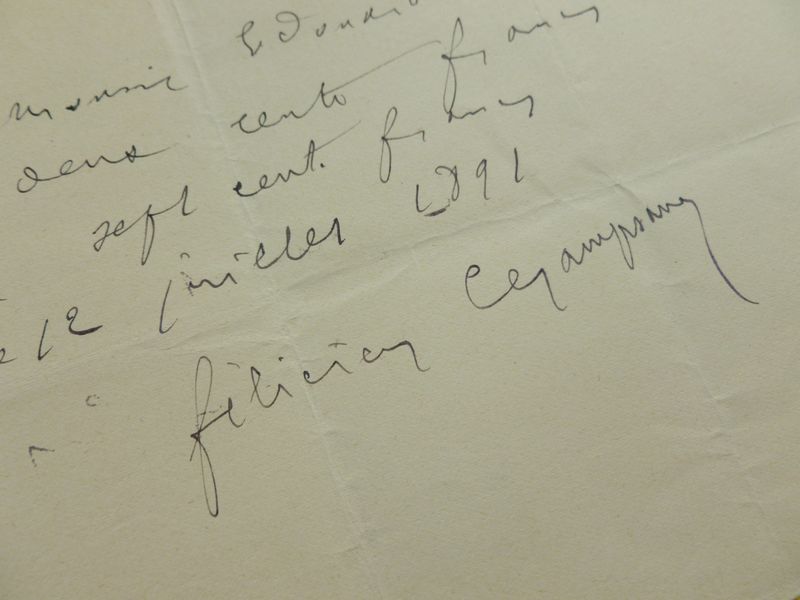 monsie Edouard
deux cents francs
sept cent. francs
le 12 juillet 1891
félicien Champsaur